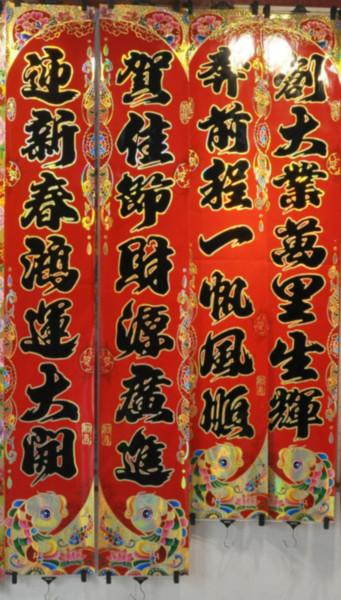 創大業萬里生輝
奔前程一帆風順
賀佳節財源廣進
迎新春鴻運大開